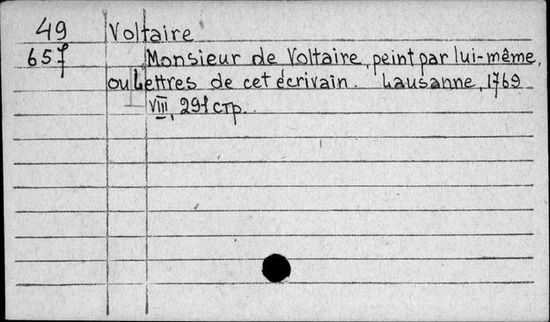 49 Voltaire
657 Monsieur de Voltaire, peint par lui-même,
ou Lettres de cet écrivain. Lausanne, 1769
VIII, 291 стр.